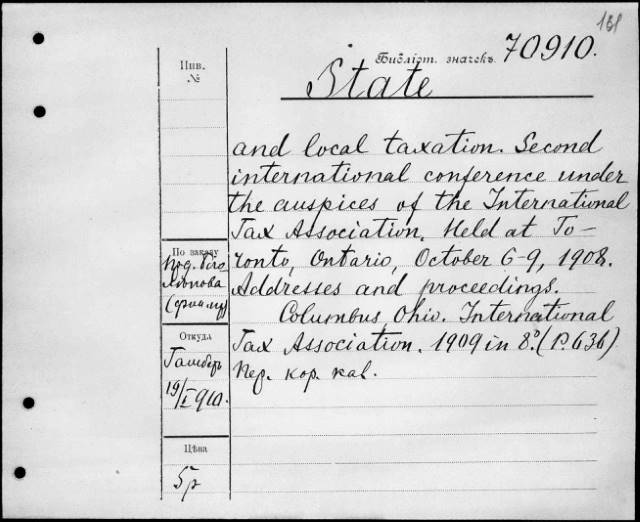 181
Инв.
№
Библіот. значекъ 70910.
State
and local taxation. Second
international conference under
the auspices of the International
Tax Association. Held at To-
ronto, Ontario, October 6-9, 1908.
Addresses and proceedings.
Columbus, Ohio. International
Tax Association. 1909 in 8°. (P. 636)
пер. кор. кал.
По заказу
(физику)
Откуда
19/I 910.
Цѣна
5р